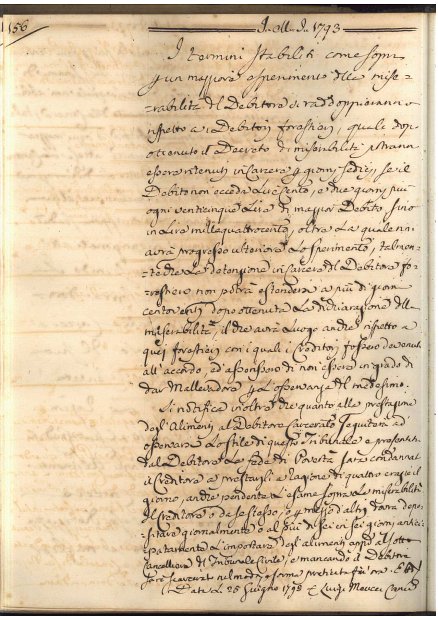 156
I termini stabiliti come sopra
p un maggiore esperimento della mise-
rabilità del Debitore si raddoppieranno
rispetto ai Debitori forestieri, quali dopo
ottenuto il Decreto di miserabilità potranno
essere ritenuti in Carcere p giorni sedici se il
Debito non ecceda Lire Cento, e due giorni più
ogni venticinque Lire di maggior Debito sino
in Lire millequattrocento, oltre la quale non
avrà progresso ulteriore lo sperimento, talmen-
te che la detenzione in Carcere del Debitore fo-
restiere non potrà estendersi a più di giorni
centoventi dopo ottenuta la dichiarazione della
miserabilità, il che avrà luogo anche rispetto a
quei forestieri con i quali i Creditori fossero devenuti
all'accordo, ed asserissero di non essere in grado di
dar Mallevadore p l'osservanza del medesimo.
Si notifica inoltre che quanto alle prestazioni
degl'Alimenti al Debitore Carcerato seguiterà ad
osservarsi lo stile di questo Tribunale e presentata
dal Debitore la fede di Povertà sarà condannato
il Creditore a prestargli a ragione di quattro crazie il
giorno, anche pendente l'esame sopra la miserabilità
Il Creditore o da se stesso, o p mezzo d'altri dovrà depo-
sitare giornalmente o al più di sei in sei giorni antici-
patamente l'importare degl'alimenti appo il sotto
Cancelliere del Tribunale Civile, e mancando il Debitore
sarà scarcerato nel modo, e forma praticata fin ora.
Dat. Li 25 Giugno 1793 Luigi Meucci Canc